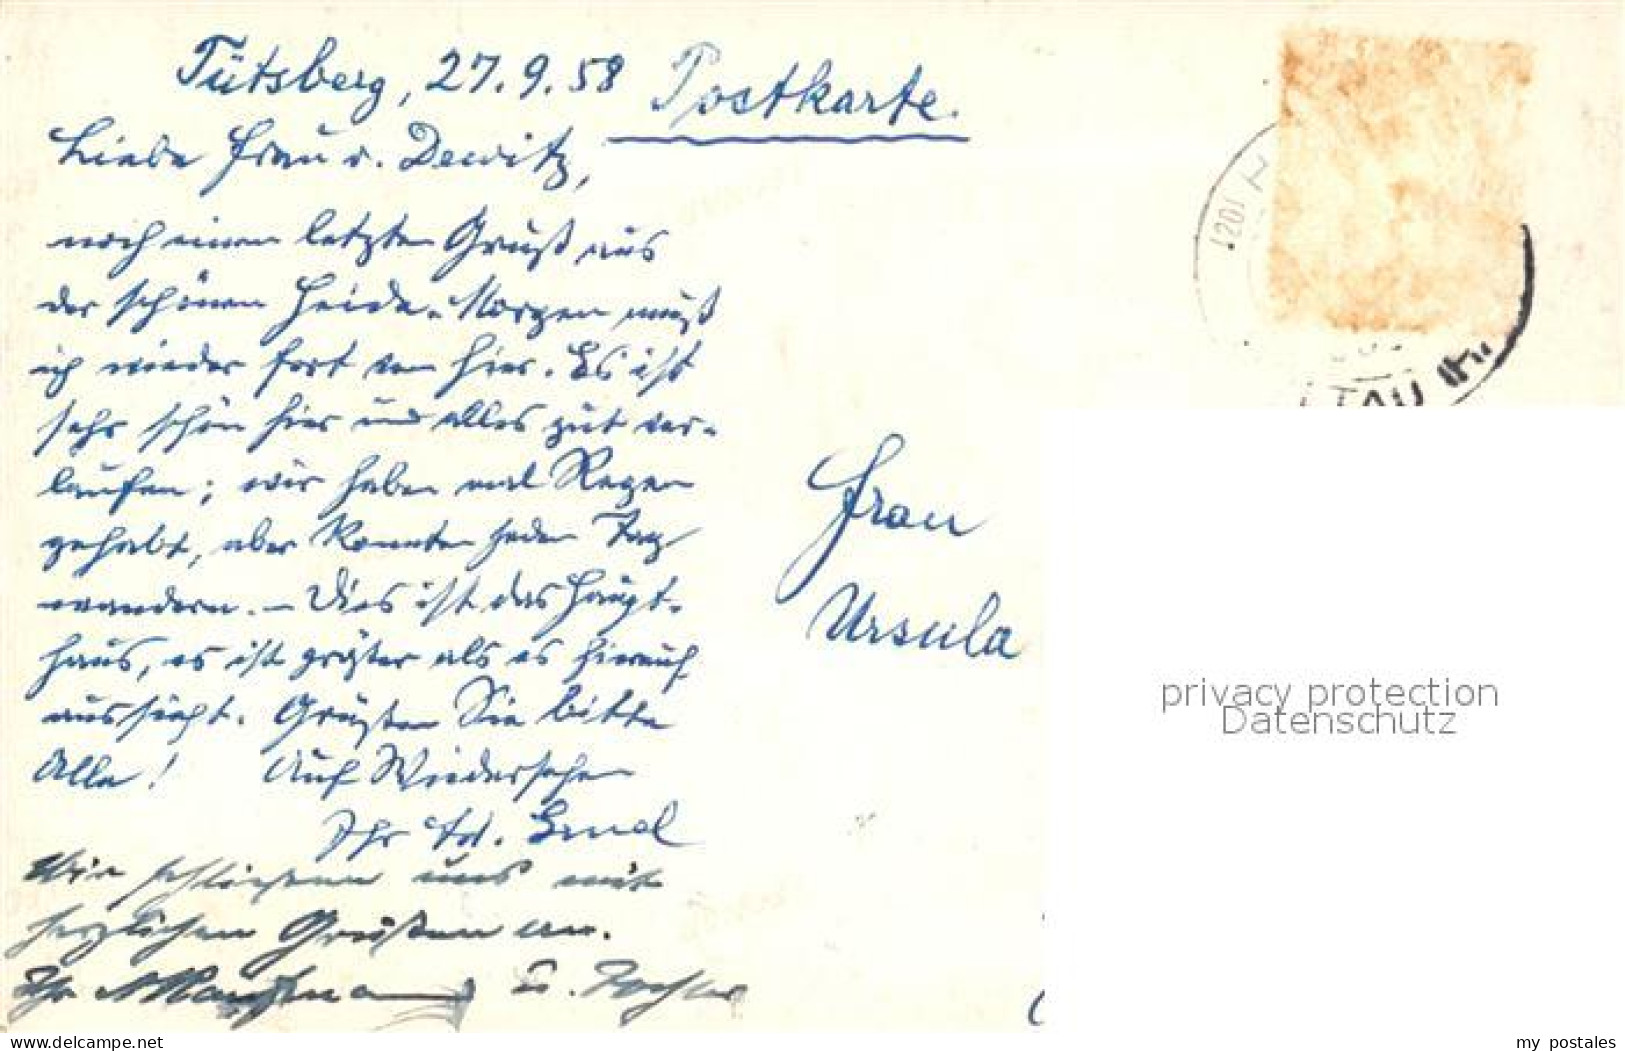 Tütsberg, 27.9.58 Postkarte.
Liebe Frau v. Dewitz,
noch einen letzten Gruß aus
der schönen Heide. Morgen muß
ich wieder fort von hier. Es ist
sehr schön hier und alles gut ver-
laufen; wir haben mal Regen
gehabt, aber konnten jeden Tag
wandern. – Dies ist das Haupt-
haus, es ist größer als es hierauf
aussieht. Grüßen Sie bitte
Alle! Auf Wiedersehen
Ihr
Wir schließen uns mit
herzlichen Grüßen an.
Ihr u. Tochter
Frau
Ursula
(20)
LTAU
privacy protection
Datenschutz
www.delcampe.net
my_postales